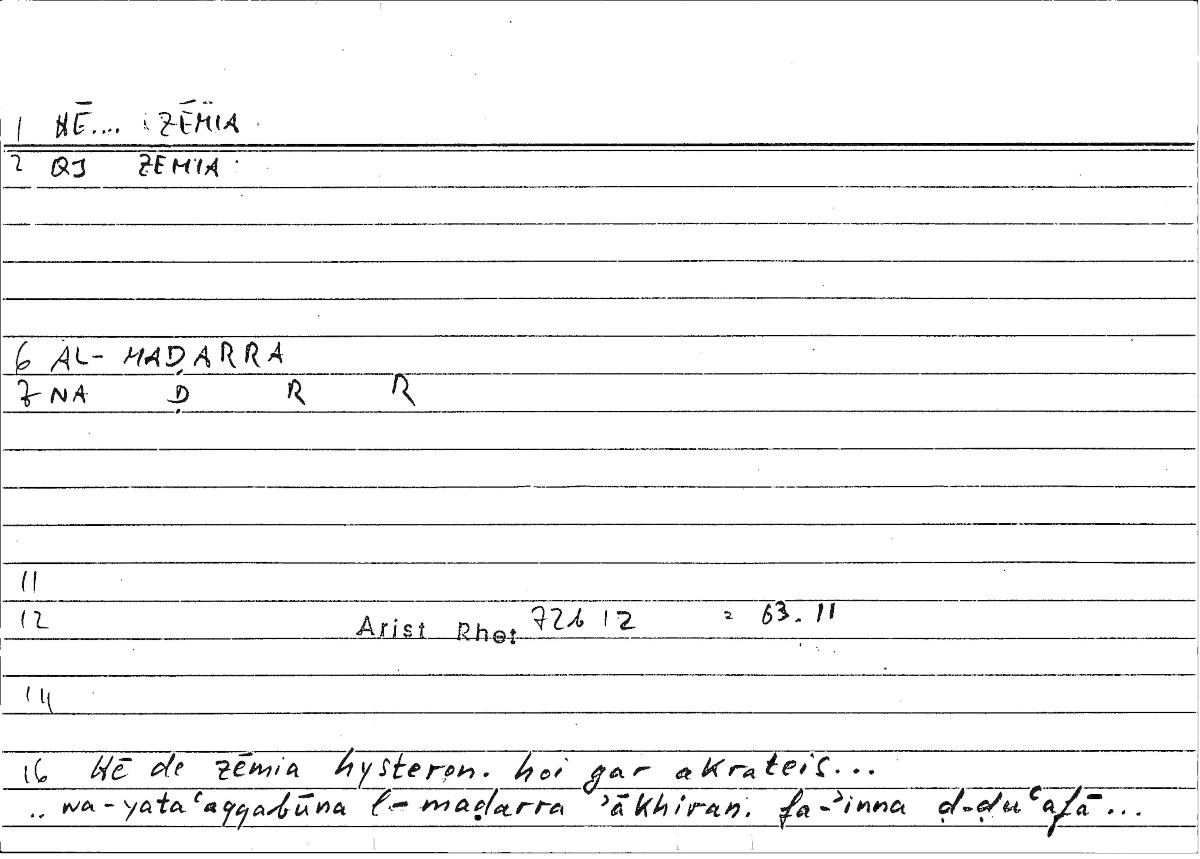 1 HĒ.... ZĒMIA
2 QI ZEMIA
6 AL-MAḌARRA
7 NA Ḍ R R
11
12 Arist Rhet 72b12 = 63.11
14
16 Hē de zēmia hysteron. hoi gar akrateis...
.. wa-yataʿaqqabūna l-maḍarra ʾākhiran. fa-ʾinna ḍ-ḍuʿafā...